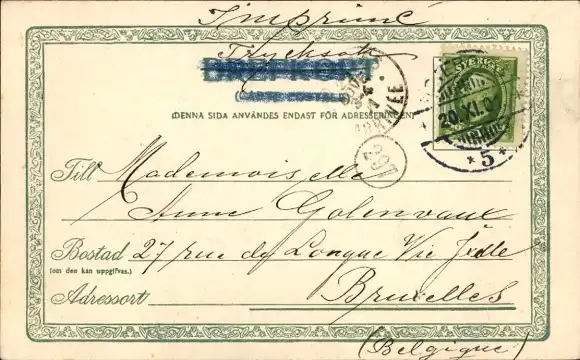 Imprimé
Trycksak
BREFKORT
CARTE POSTALE
(DENNA SIDA ANVÄNDES ENDAST FÖR ADRESSERINGEN)
SVERIGE
20.XI.0
*5*
ARRIVÉE
Till Mademoiselle
Anne Golenvaux
Bostad 27 rue de Longue Vie Ixelle
(om den kan uppgifvas.)
Adressort Bruxelles
(Belgique)